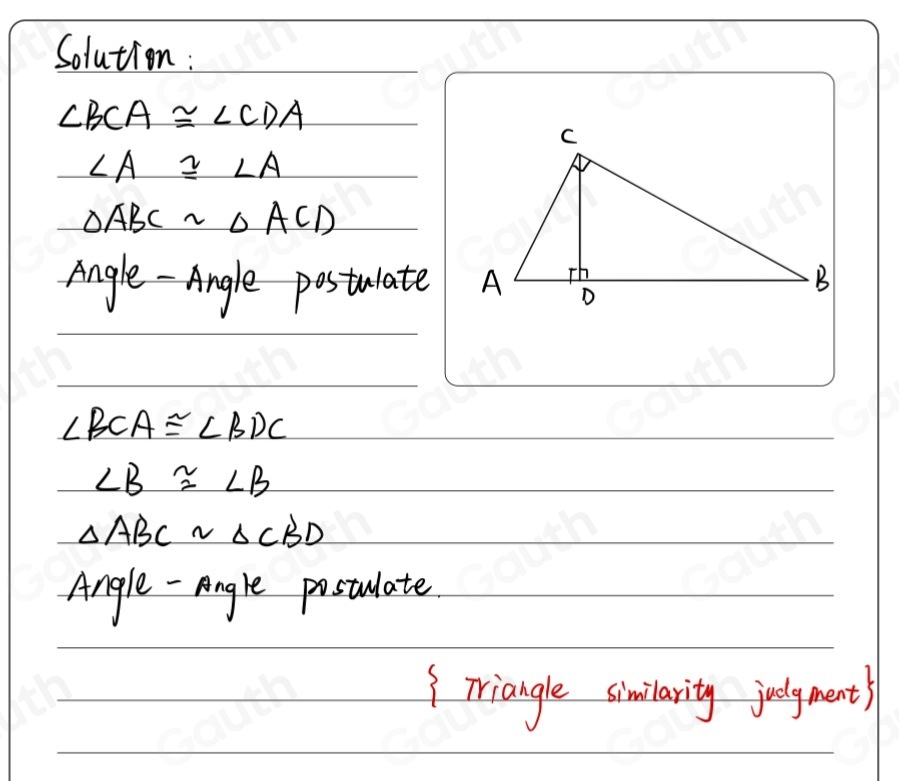 Solution:
∠BCA ≅ ∠CDA
∠A ≅ ∠A
△ABC ~ △ACD
Angle-Angle postulate
C
A
D
B
∠BCA ≅ ∠BDC
∠B ≅ ∠B
△ABC ~ △CBD
Angle-Angle postulate.
{Triangle similarity judgment}
Gauth